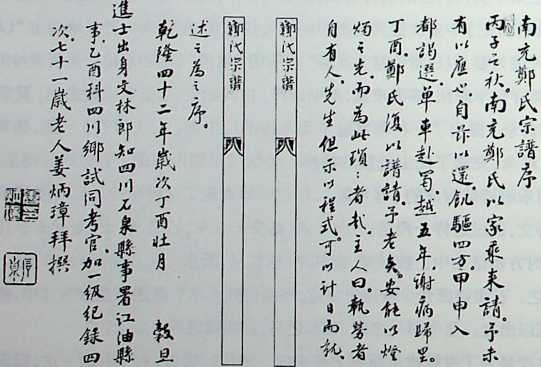 南充鄭氏宗譜序
丙子之秋。南充鄭氏以家乘来請。予未
有以應也。自許以還。飢驅四方。甲申入
都謁選單車赴蜀。越五年。謝病歸里。
丁酉鄭氏復以譜請。予老矣。安能以燈
燭之光。而為此瑣瑣者哉。主人曰。執勞者
自有人。先生但示以程式。可以計日而就。
鄭氏宗譜
鄭氏宗譜
述之為之序。
乾隆四十二年歲次丁酉壯月 穀旦
進士出身文林郎知四川石泉縣事署江油縣
事。乙酉科四川鄉試同考官。加一級紀錄四
次七十一歲老人姜炳璋拜撰